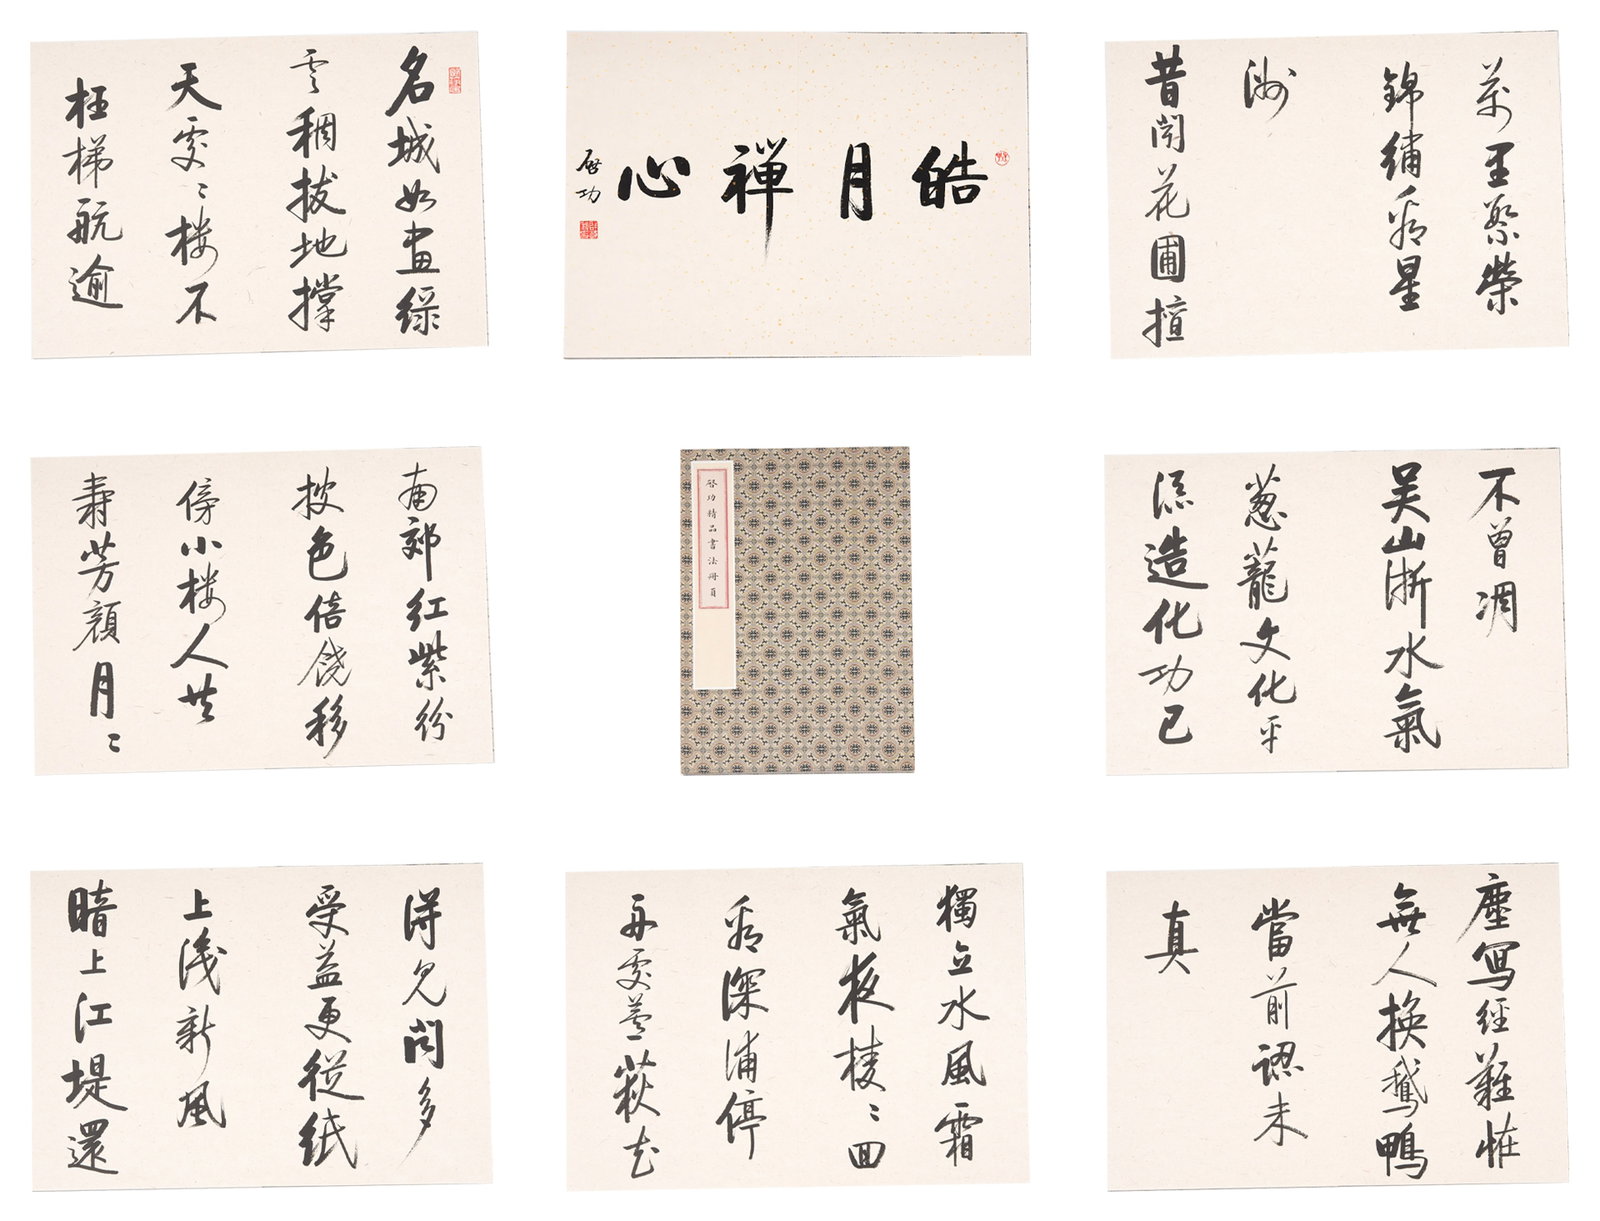 名城如畫綠
雲稠拔地撐
天處〻樓不
枉梯航逾
皓月禪心
啟功
萬里繁榮
錦繡春星
洲
昔閉花圃擅
南郊紅紫紛
披色倍饒移
傍小樓人共
壽芳顏月〻
啓功精品書法冊頁
不曾凋
吳山浙水氣
蔥蘢文化平
添造化功已
得見聞多
受益更從紙
上淺新風
暗上江堤還
獨立水風霜
氣夜棱〻回
看深浦停
舟處蘆荻花
塵寫經難惟
無人換鵝鴨
當前認未
真